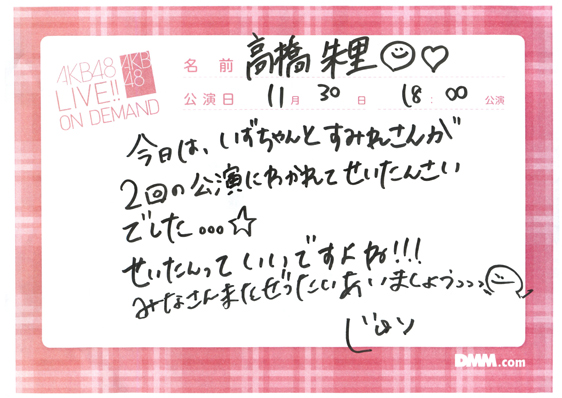 AKB48
LIVE!!
ON DEMAND
AKB
48
名前 高橋朱里
公演日 11月30日 18:00公演
今日は、いずちゃんとすみれさんが
2回の公演にわかれてせいたんさい
でした...☆
せいたんっていいですよね!!!
みなさんまたぜったいあいましょうっっっ
DMM.com